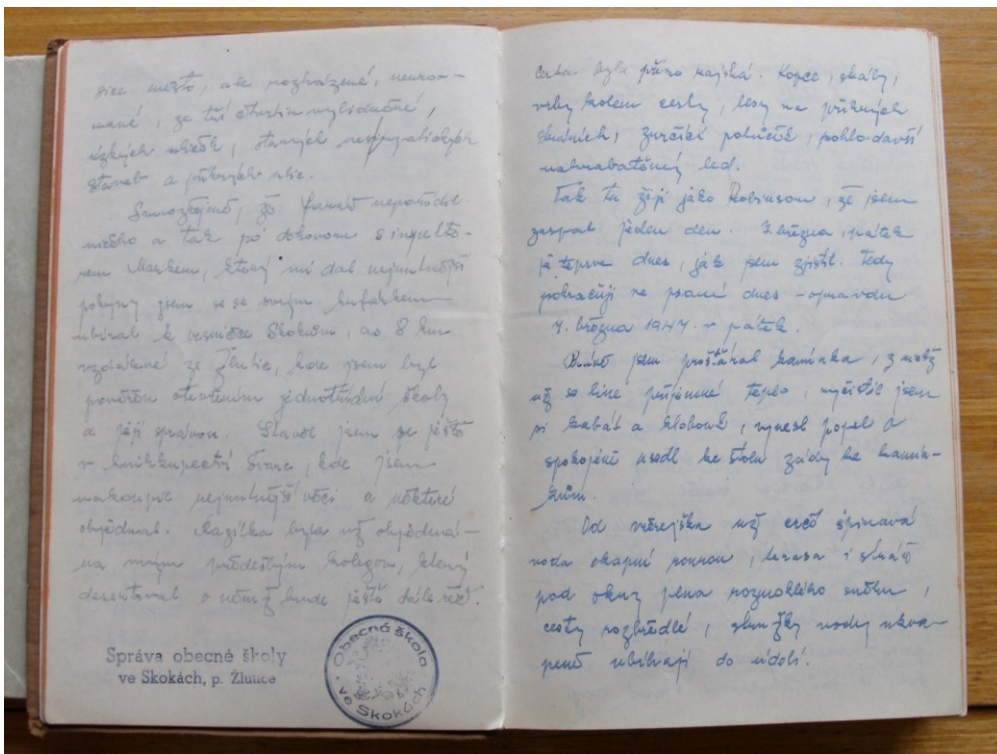 sice město, ale rozházené, nerov-
nané, ze tří čtvrtin vylidněné,
úzkých uliček, starých nesympatických
staveb a příkrých ulic.
Samozřejmě, že farář nepořídil
ničeho a tak po dohovoru s inspekto-
rem Markem, který mi dal nejnutnější
pokyny jsem se se svým kufárkem
ubíral k vesničce Skokům, as 8 km
vzdálené ze Žlutic, kde jsem byl
pověřen otevřením jednotřídní školy
a její správou. Stavil jsem se ještě
v knihkupectví Švarc, kde jsem
nakoupil nejnutnější věci a některé
objednal. Razítka byla už objedná-
na mým předešlým kolegou, který
desertoval o němž bude ještě dále řeč.
Správa obecné školy
ve Skokách, p. Žlutice
Obecná škola
ve Skokách
Cesta byla přímo rajská. Kopce, skály,
vrby kolem cesty, lesy na příkrých
skalních, zurčící potůček, pohlodavší
nahrabatěný led.
Tak tu žiji jako Robinson, že jsem
zaspal jeden den. 7. března, pátek
je teprve dnes, jak jsem zjistil. Tedy
pokračuji ve psaní dnes - opravdu
7. března 1947. v pátek.
jsem proštáral kamínka, z nichž
už se line příjemné teplo, vyčistil jsem
si kabát a klobouk, vynesl popel a
spokojeně usedl ke stolu zády ke kamín-
kům.
Od včerejška už crčí špinavá
voda okapní rourou, terasa i stráň
pod okny plna rozmoklého sněhu,
cesty rozbředlé, stružky vody ukva-
peně ubíhají do údolí.